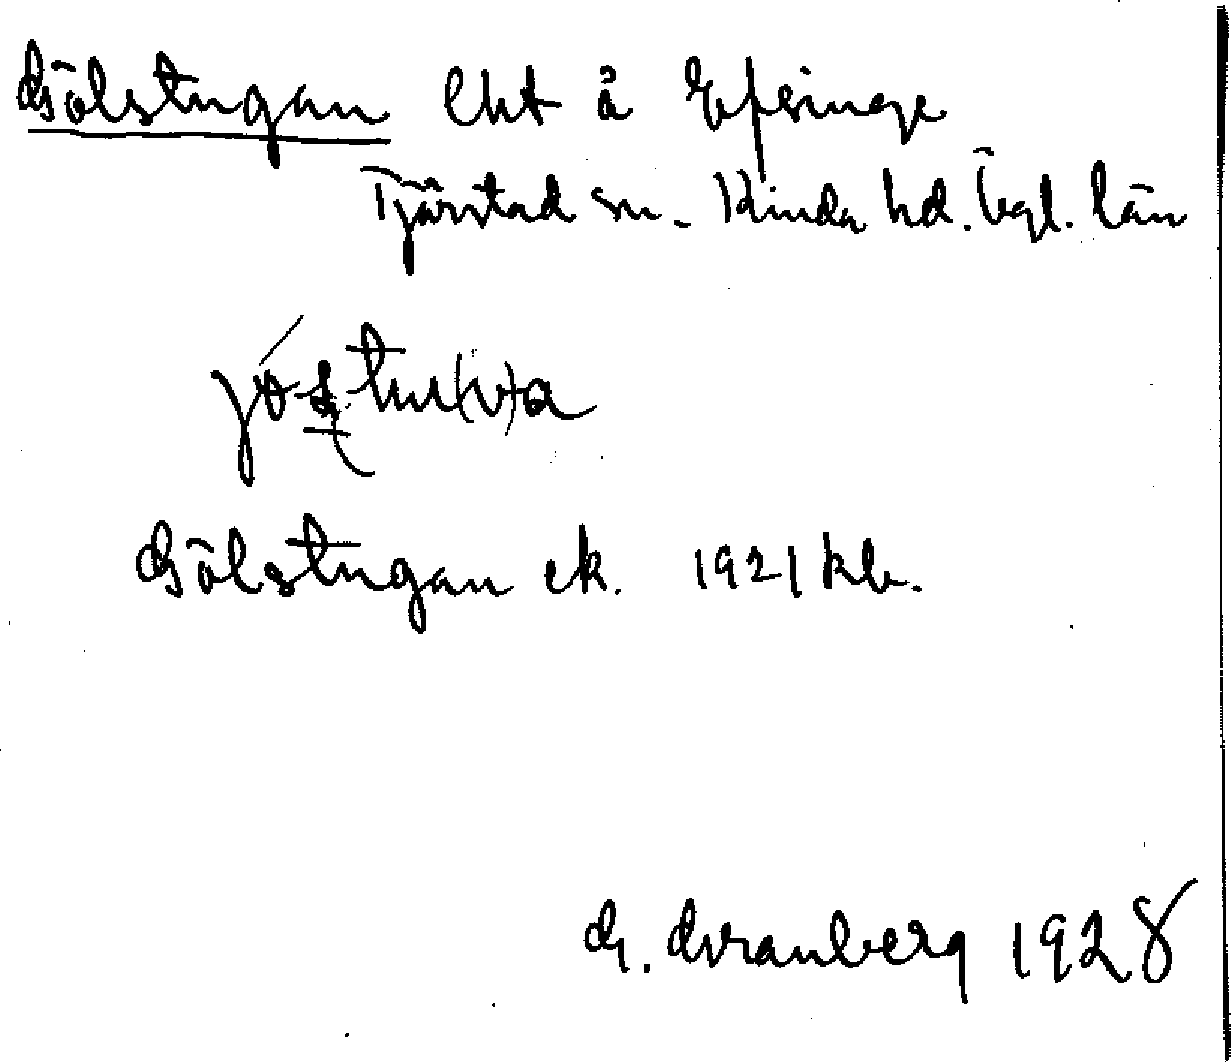 Gölstugan lht å Efsinge
Tjärstad sn. Kinda hd. Ögl. län
Gölstugan ek. 1921 kb.
G. Granberg 1928